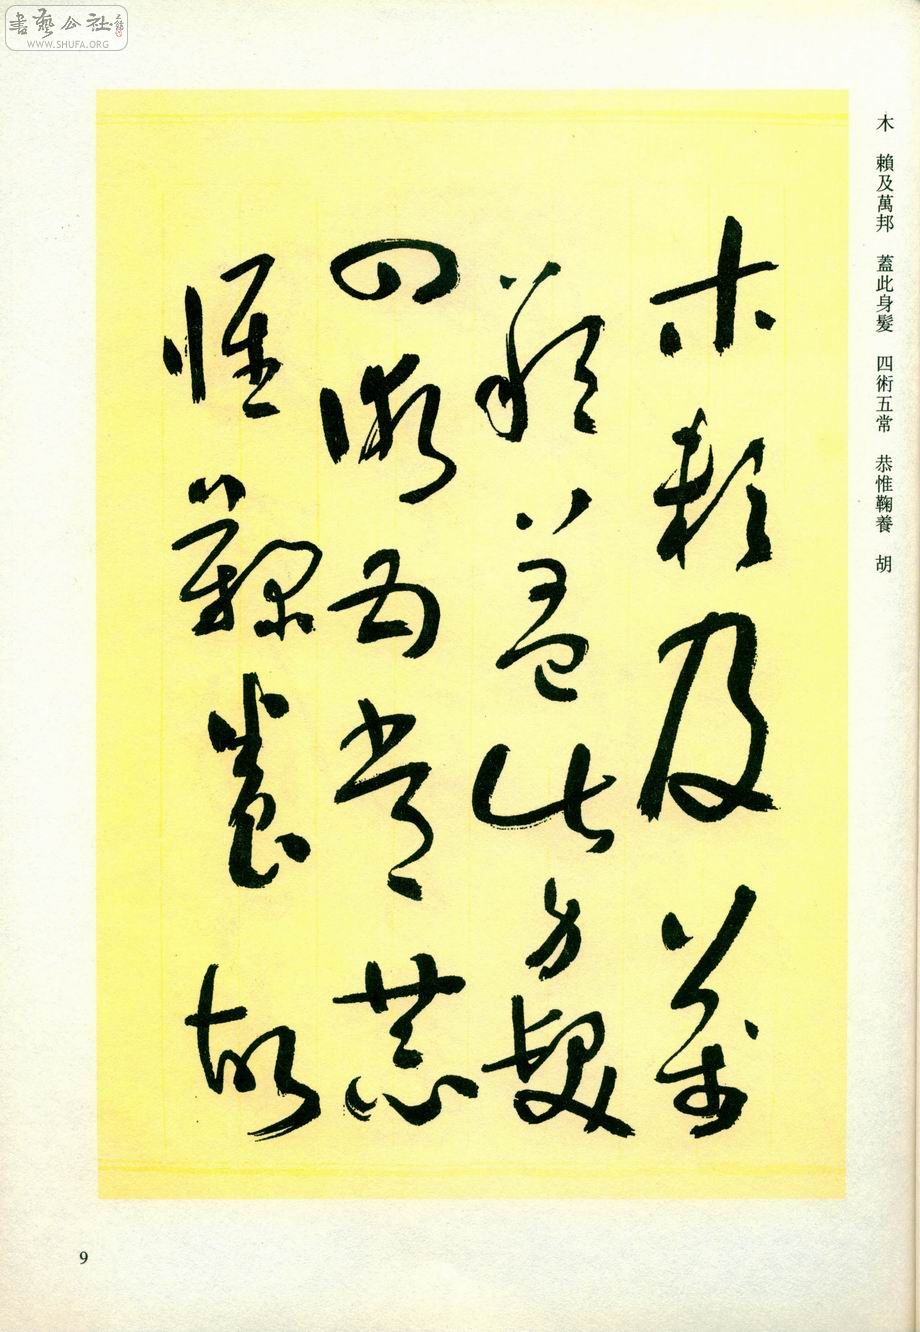 書藝公社
WWW.SHUFA.ORG
木 賴及萬邦 蓋此身髮 四術五常 恭惟鞠養 胡
木賴及萬
邦蓋此身髮
四術五常恭
惟鞠養胡
9